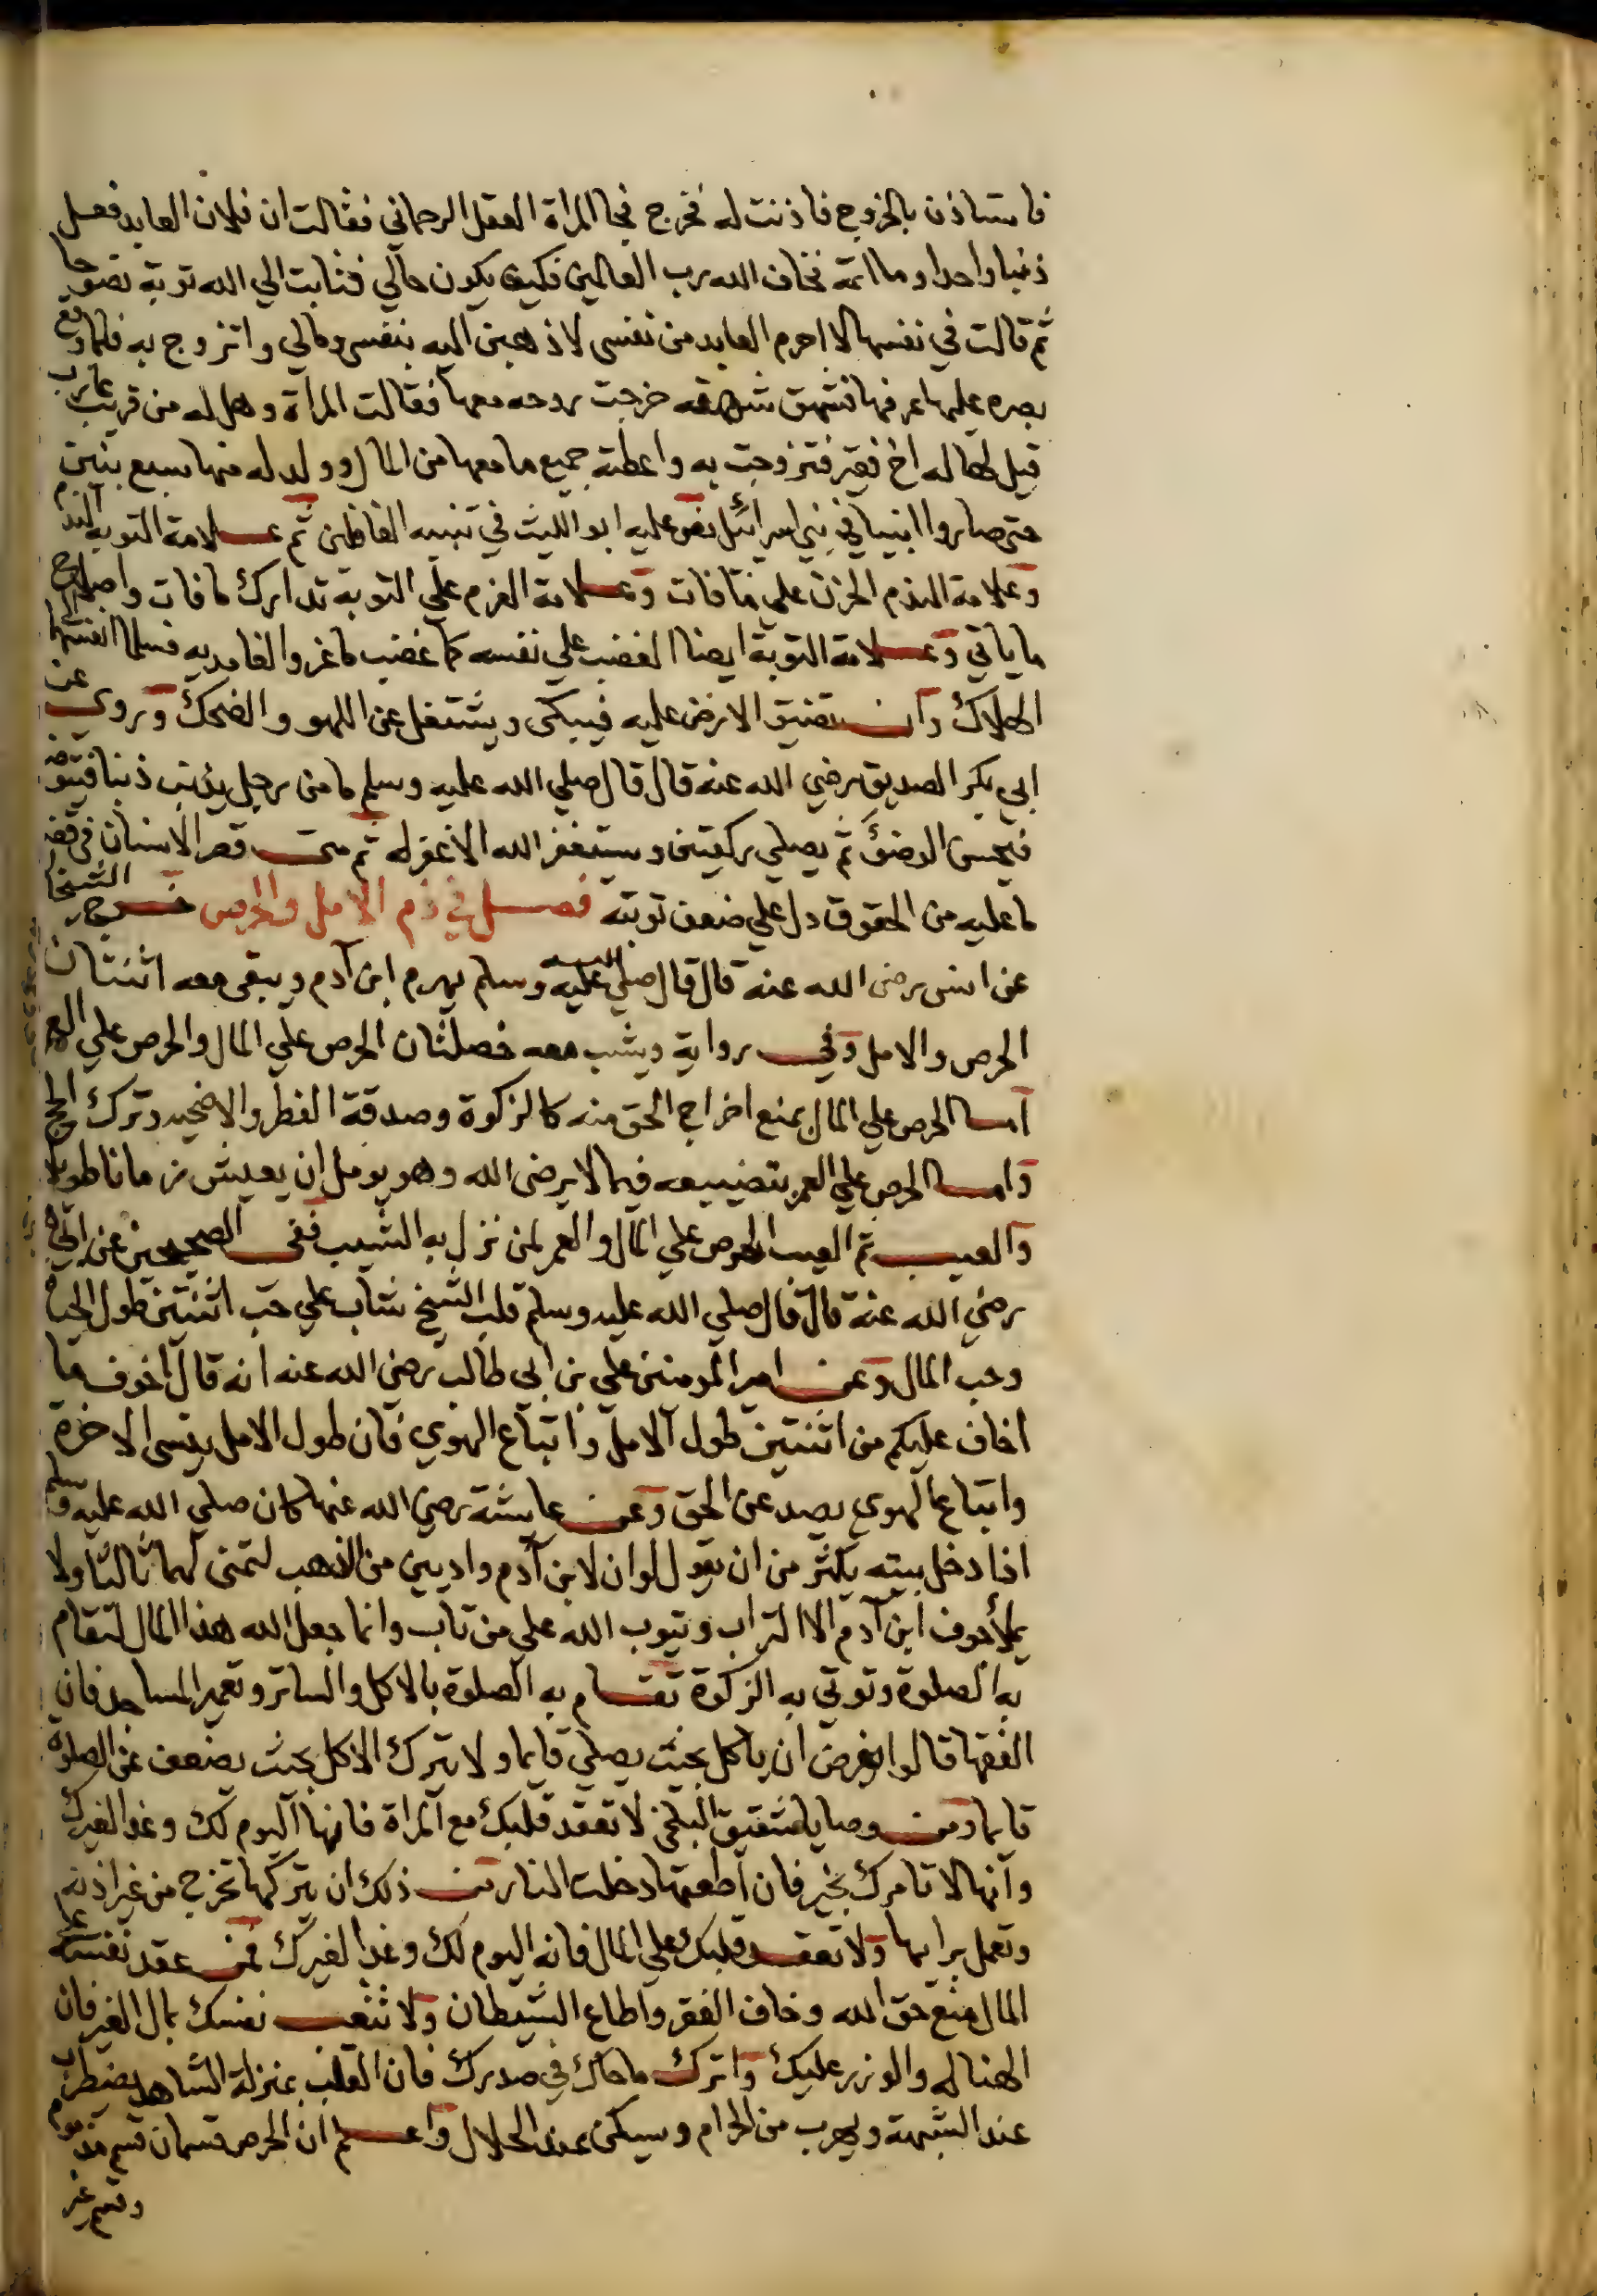 فاستاذن بالخروج فاذنت له فخرج فجا المراة العقل الرحماني فقالت ان فلان العابد فعل
ذنبا واحدا وما اتمه فخاف الله رب العالمين فكيف يكون حالي فتابت الي الله توبة نصوحا
ثم قالت في نفسها لا احرم العابد من نفسي لاذهبن اليه بنفسي ومالي واتزوج به فلما وقع
بصره عليها عرفها فشهق شهقة خرجت روحه معها فقالت المراة وهل له من قريب
قيل لها له اخ فقير فتزوجت به واعطته جميع ما معها من المال وولد له منها سبع بنين
حتي صاروا انبيا في بني اسرائل نص عليه ابو الليث في تنبيه الغافلين ثم علامة التوبة الندم
وعلامة الندم الحزن علي ما فات وعلامة العزم علي التوبة تدارك ما فات واصلاح
ما ياتي وعلامة التوبة ايضا الغضب علي نفسه كما غضب ماعز والغامديه فسلما انفسهما الي
الهلاك وان تضيق الارض عليه فيبكي ويشتغل عن اللهو والضحك وروي عن
ابي بكر الصديق رضي الله عنه قال قال صلي الله عليه وسلم ما من رجل يذنب ذنبا فيتوضا
فيحسن الوضوء ثم يصلي ركعتين ويستغفر الله الا غفر له ثم متي قصر الانسان في قضا
ما عليه من الحقوق دل علي ضعف توبته فصل في ذم الامل والحرص خرج الشيخان
عن انس رضي الله عنه قال قال صلي الله عليه وسلم يهرم ابن آدم ويبقي معه اثنتان
الحرص والامل وفي رواية ويشب معه خصلتان الحرص علي المال والحرص علي العمر
اما الحرص علي المال بمنع اخراج الحق منه كالزكوة وصدقة الفطر والاضحيه وترك الحج
واما الحرص علي العمر بتضييعه فيما لا يرضي الله وهو يومل ان يعيش زمانا طويلا
والعيب ثم العيب الحرص علي المال والعمر لمن نزل به الشيب ففي الصحيحين عن ابي
رضي الله عنه قال قال صلي الله عليه وسلم قلب الشيخ شاب علي حب اثنتين طول الحياة
وحب المال وعن امير المومنين علي بن ابي طالب رضي الله عنه انه قال اخوف ما
اخاف عليكم من اثنتين طول الامل واتباع الهوي فان طول الامل ينسي الاخرة
واتباع الهوي يصد عن الحق وعن عايشة رضي الله عنها كان صلي الله عليه وسلم
اذا دخل بيته يكثر من ان يقول لو ان لابن آدم واديين من الذهب لتمني لهما ثالثا ولا
يملأ جوف ابن آدم الا التراب ويتوب الله علي من تاب وانما جعل الله هذا المال لتقام
به الصلوة وتوتي به الزكوة تقام به الصلوة بالاكل والساتر وتعمير المساجد فان
الفقها قالوا يفرض ان ياكل بحيث يصلي قايما ولا يترك الاكل بحيث يضعف عن الصلوة
قايما ومن وصايا شقيق البلخي لا تعقد قلبك مع المراة فانها اليوم لك وغدا لغيرك
وانها لا تامرك بخير فان اطعتها دخلت النار من ذلك ان يتركها تخرج من غير اذنه
وتعمل برايها ولا تعقد قلبك علي المال فانه اليوم لك وغدا لغيرك فمن عقد نفسه علي
المال منع حق الله وخاف الفقر واطاع الشيطان ولا تتعب نفسك بمال الغير فان
الهنا له والوزر عليك واترك ما حاك في صدرك فان القلب بمنزلة الشاهد يضطرب
عند الشبهة ويهرب من الحرام ويسكن عند الحلال واعلم ان الحرص قسمان قسم مذموم
وقسم غير